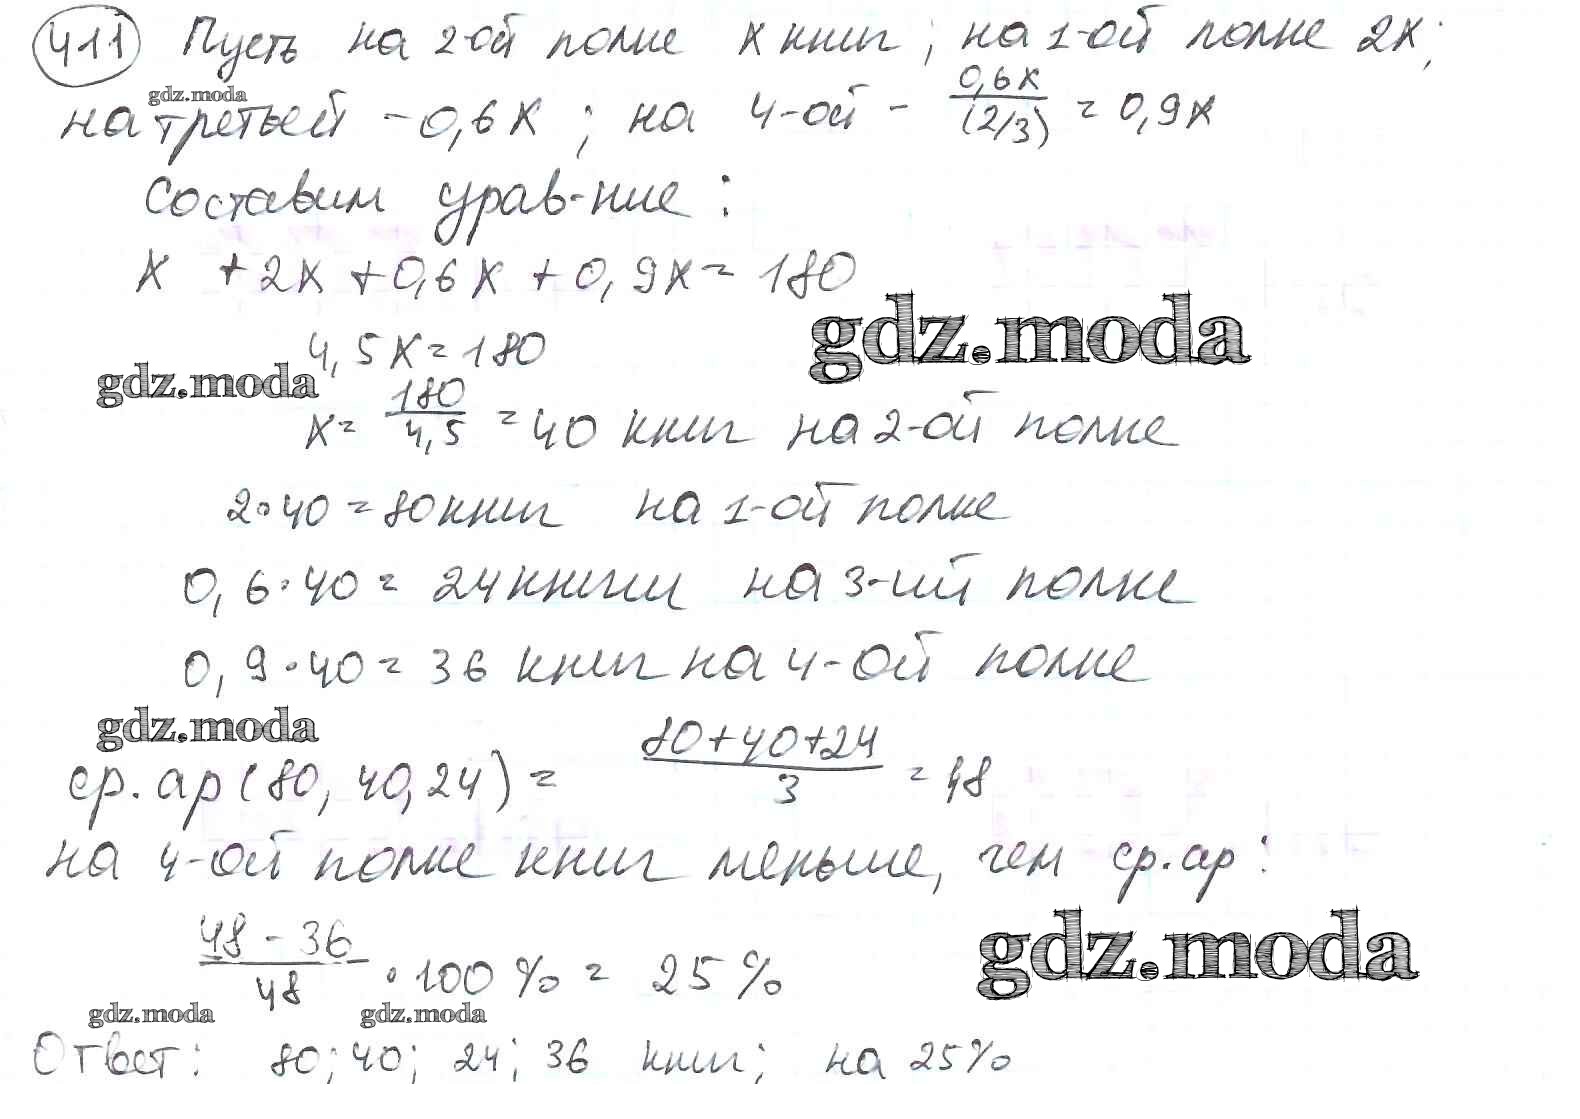 411 Пусть на 2-ой полке x книг; на 1-ой полке 2x;
gdz.moda
на третьей - 0,6x; на 4-ой - 0,6x/(2/3) = 0,9x
Составим урав-ние:
x + 2x + 0,6x + 0,9x = 180
gdz.moda
4,5x = 180
gdz.moda
x = 180/4,5 = 40 книг на 2-ой полке
2·40 = 80 книг на 1-ой полке
0,6·40 = 24 книги на 3-ий полке
0,9·40 = 36 книг на 4-ой полке
gdz.moda
ср.ар (80, 40, 24) = (80+40+24)/3 = 48
на 4-ой полке книг меньше, чем ср.ар:
gdz.moda
(48 - 36)/48 · 100% = 25%
gdz.moda gdz.moda
Ответ: 80; 40; 24; 36 книг; на 25%